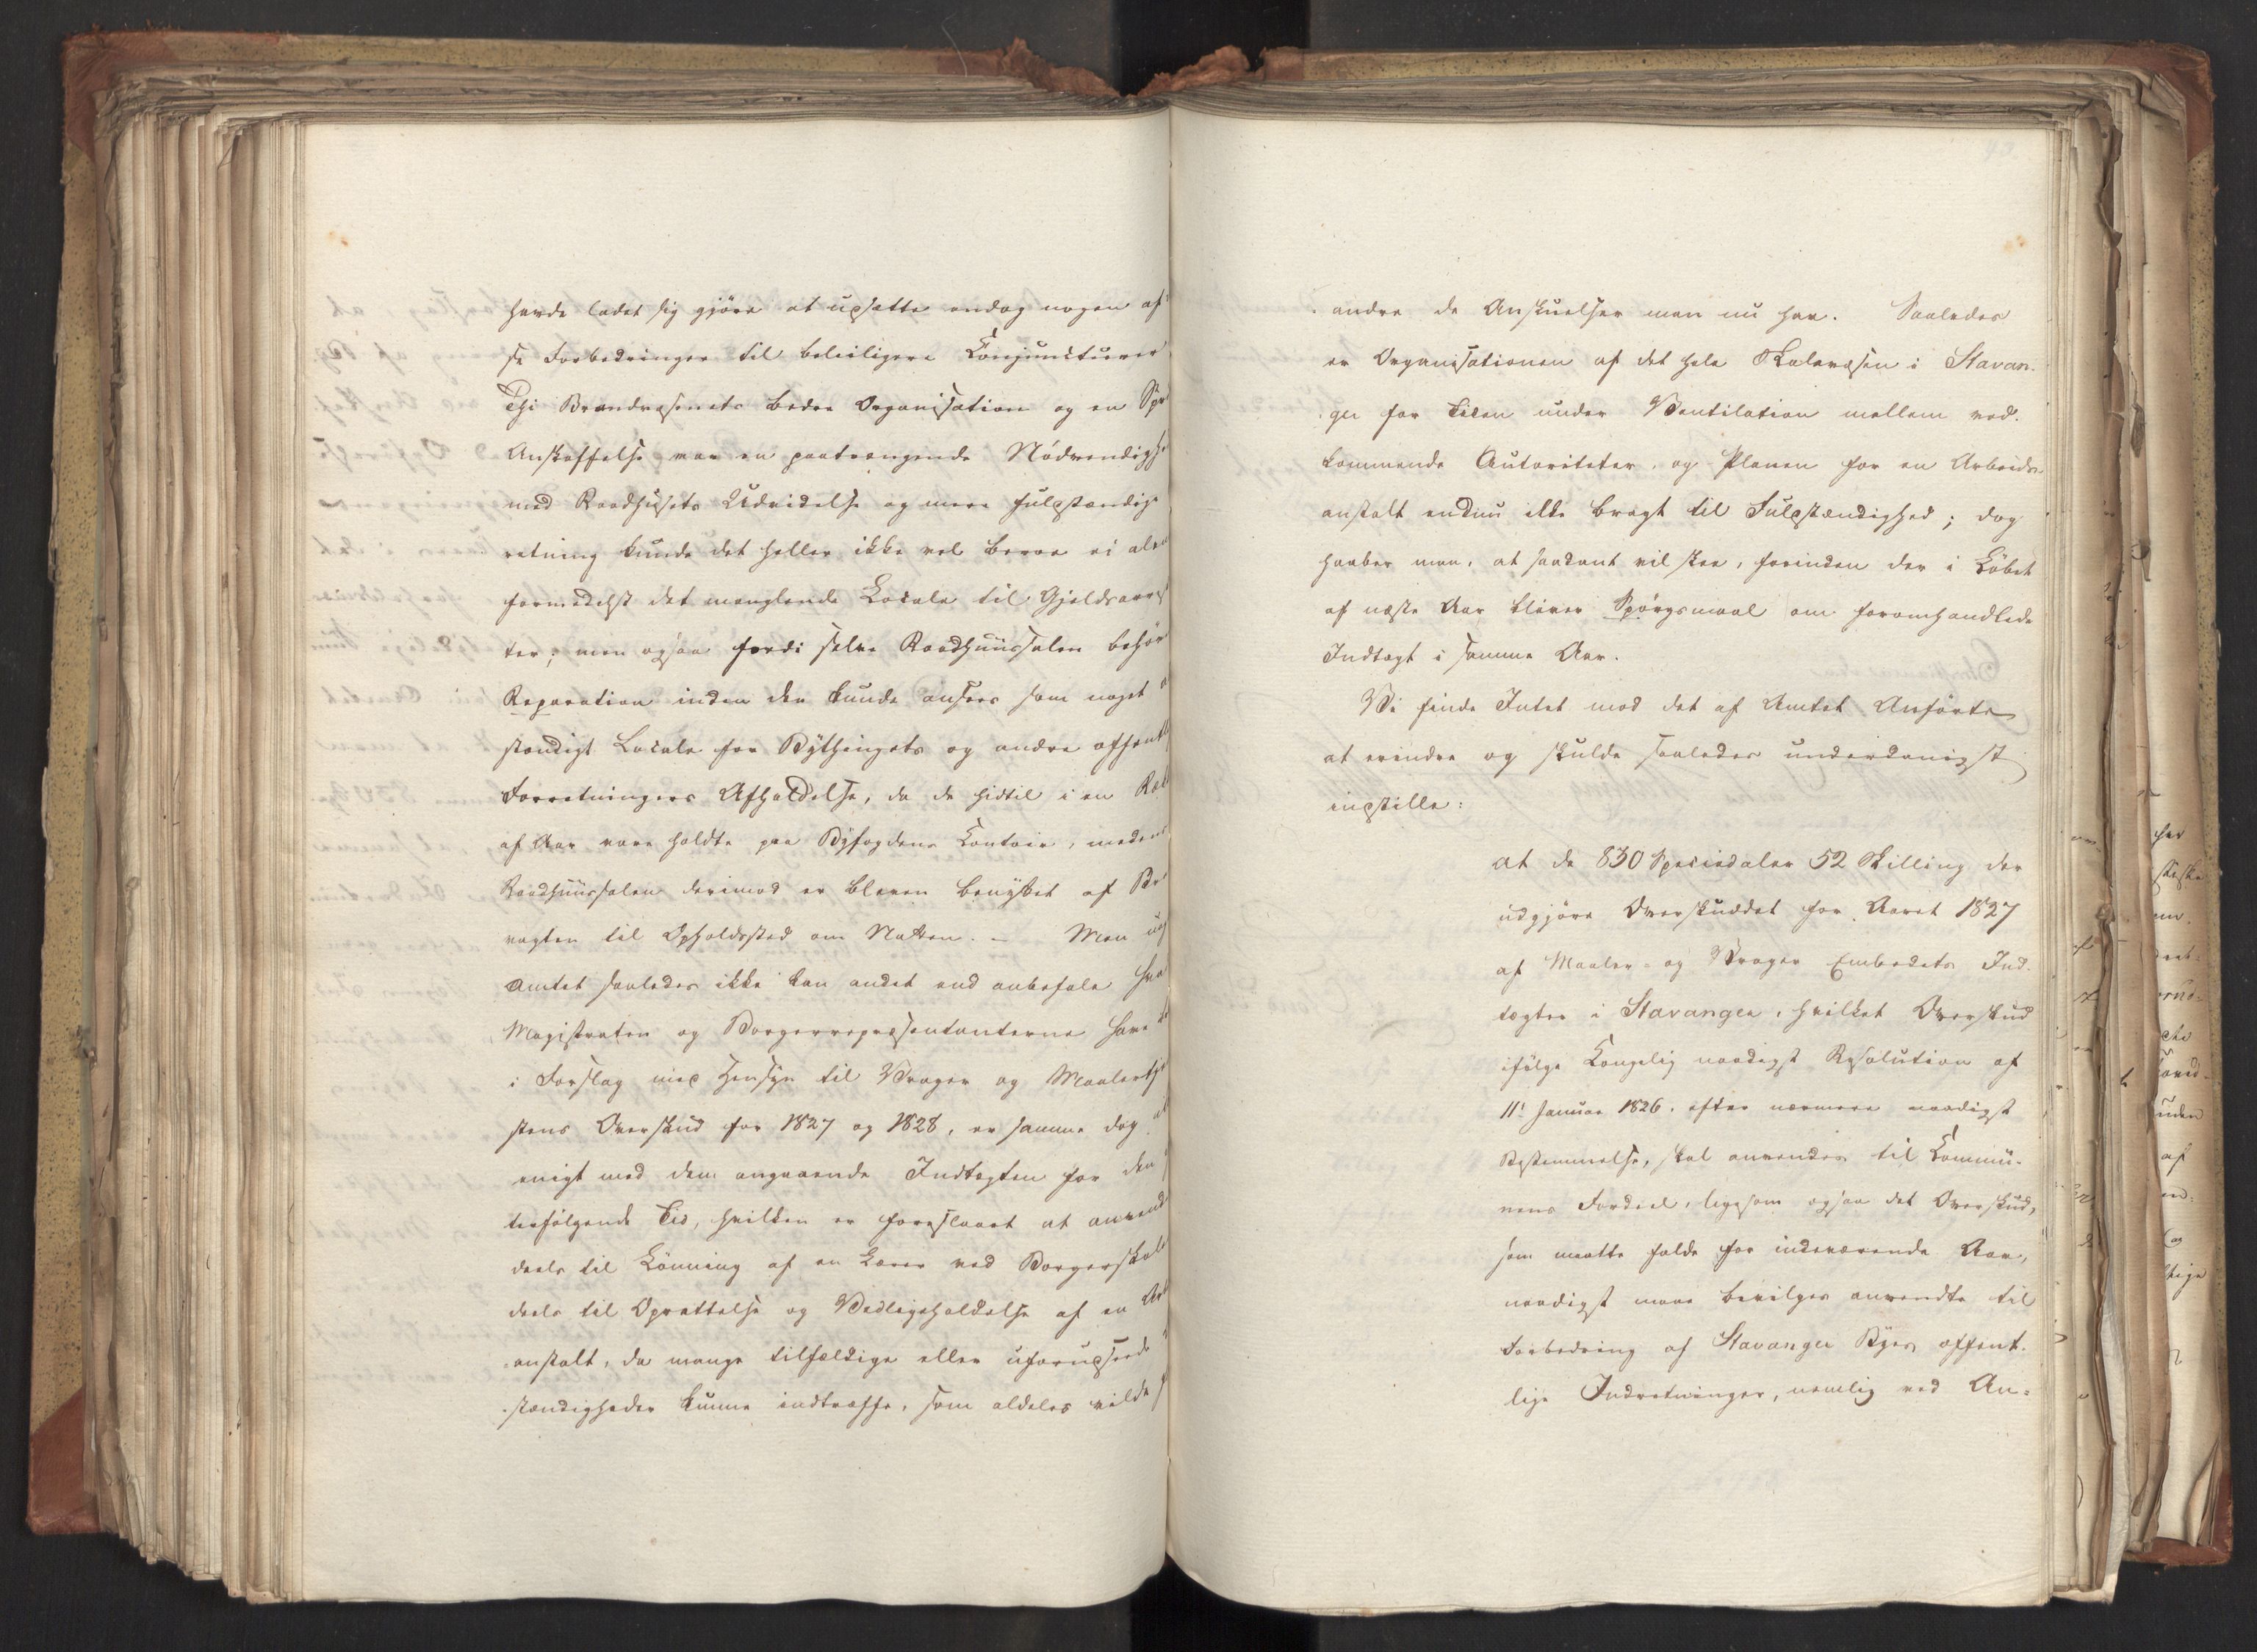 havde ladet sig gjöre at upsætte endog nogen af
se Forbedringer til beleiligere Conjuncturer
Thi Brandvæsenets bedre Organisation og en Spr
Anskaffelse var en paatrængende Nödvendighe
med Raadhusets Udvidelse og mere fulstændige
retning kunde det heller ikke vel beroe ei alen
formedelst det manglende Locale til Gjeldsarres
ter; men ogsaa fordi selve Raadhuussalen behöv
Reparation inden den kunde ansees som noget a
stændigt Locale for Bythingets og andre offentl
Forretningers Afholdelse, da de hidtil i en Ræk
af Aar vare holdte paa Byfogdens Contoir, medens
Raadhuussalen derimod er bleven benyttet af Br
vagten til Opholdssted om Natten. – Men uag
Amtet saaledes ikke kan andet end anbefale hva
Magistraten og Borgerrepræsentanterne have
i Forslag med Hensyn til Vrager og Maalertje
stens Overskud for 1827 og 1828, er samme dog
enigt med dem angaaende Indtægten for den
terfölgende Tid, hvilken er foreslaaet at anvend
deels til Lönning af en Lærer ved Borgerskole
deels til Oprettelse og Vedligeholdelse af en Arb
anstalt, da mange tilfældige eller uforudseede
stændigheder kunne indtræffe, som aldeles vilde
andre de Anskuelser man nu har. Saaledes
er Organisationen af det hele Skolevæsen i Stavan-
ger for Tiden under Ventilation mellem ved-
kommende Autoriteter, og Planen for en Arbeids-
anstalt endnu ikke bragt til Fulstændighed; dog
haaber man, at saadant vil skee, forinden der i Löbet
af næste Aar bliver Spörgsmaal om foromhandlede
Indtægt i samme Aar.
Vi finde Intet mod det af Amtet Anförte
at erindre og skulde saaledes underdanigst
indstille:
at de 830 Speciedaler 52 Skilling der
udgjöre Overskuddet for Aaret 1827
af Maaler- og Vrager Embedets Ind-
tægter i Stavanger, hvilket Overskud
ifölge Kongelig naadigst Resolution af
11t Januar 1826, efter nærmere naadigst
Bestemmelse, skal anvendes til Commu-
nens Fordeel, ligesom ogsaa det Overskud,
som maatte falde for indeværende Aar,
naadigst maae bevilges anvendte til
Forbedring af Stavanger Byes offent-
lige Indretninger, nemlig ved An-